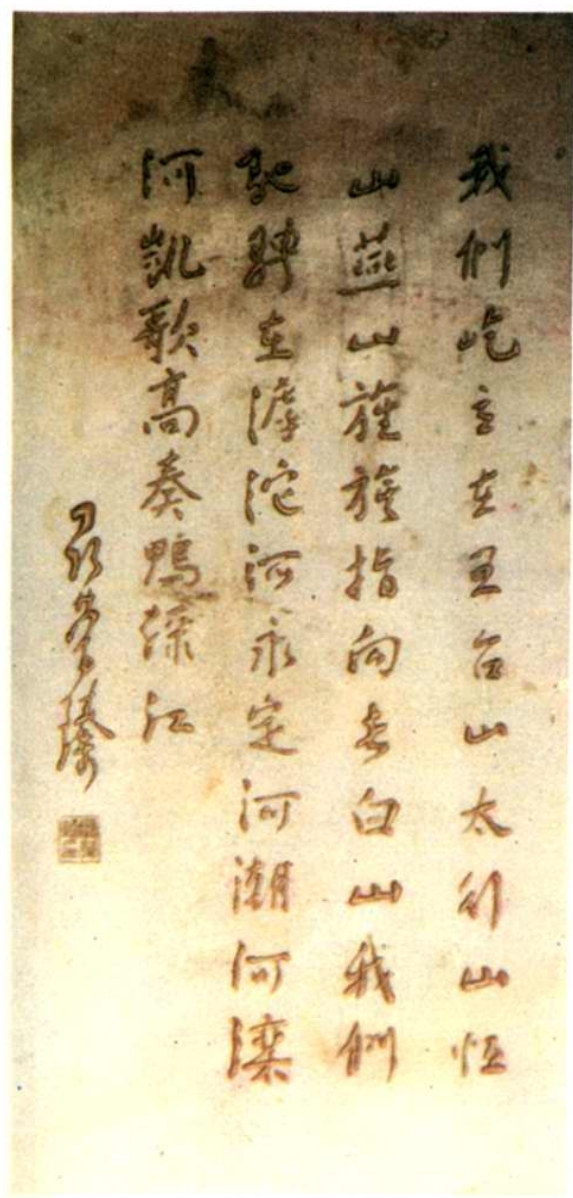 我們屹立在五台山太行山恆
山燕山旌旗指向長白山我們
馳騁在滹沱河永定河潮河灤
河凱歌高奏鴨綠江
聶榮臻